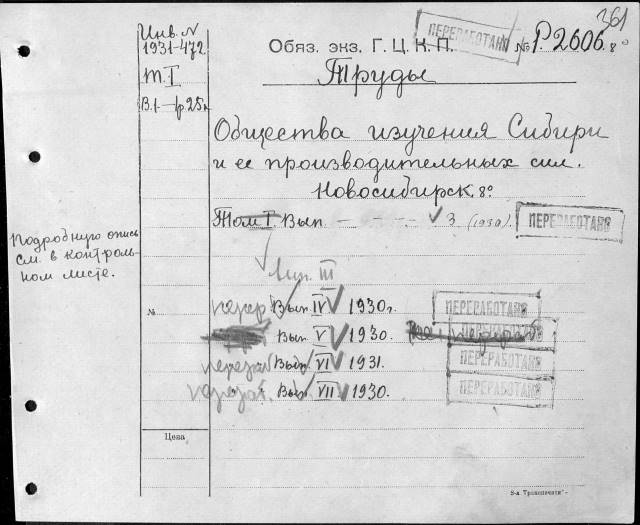 361
Инв. N
1931-472
Обяз. экз. Г. Ц. К. П.
ПЕРЕРАБОТАНО
№ Р. 2606. 8°
т. I
В.1.–1р.25к
Труды
Общества изучения Сибири
и ее производительных сил.
Новосибирск. 8°
Том I. Вып. – – – – 3 (1930)
ПЕРЕРАБОТАНО
Подробную опись
см. в контроль-
ном листе.
Вып. III
№
Вып. IV 1930г.
ПЕРЕРАБОТАНО
Вып. V 1930.
ПЕРЕРАБОТАНО
Вып. VI 1931.
ПЕРЕРАБОТАНО
Вып. VII 1930.
ПЕРЕРАБОТАНО
Цена